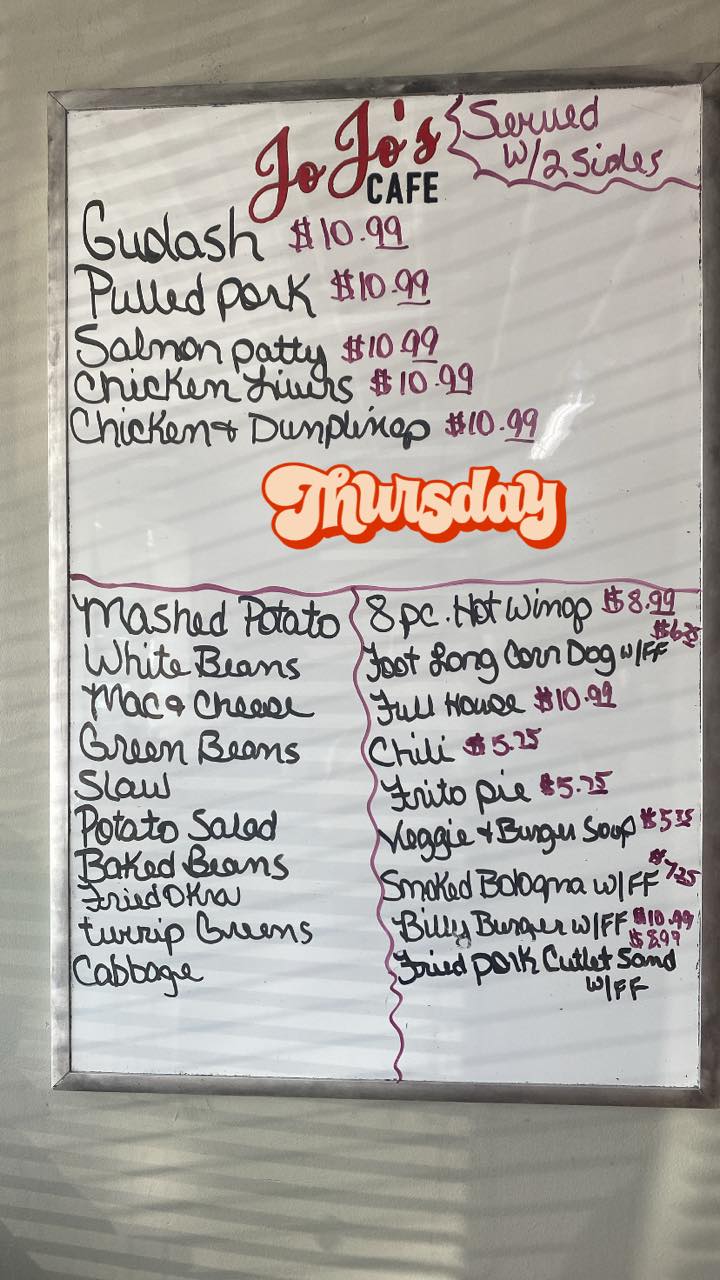 JoJo's
CAFE
Served
W/2 Sides
Gudash $10.99
Pulled pork $10.99
Salmon patty $10.99
Chicken Livers $10.99
Chicken & Dumplings $10.99
Thursday
Mashed Potato
White Beans
Mac & Cheese
Green Beans
Slaw
Potato Salad
Baked Beans
Fried OKra
turnip Greens
Cabbage
8 pc. Hot Wings $8.99
Foot Long Corn Dog w/FF
Full House $10.99
Chili $5.75
Frito pie $5.75
Veggie & Burger Soup
Smoked Bologna w/FF $7.25
Billy Burger w/FF $10.99
Fried pork Cutlet Sand $8.99
w/FF